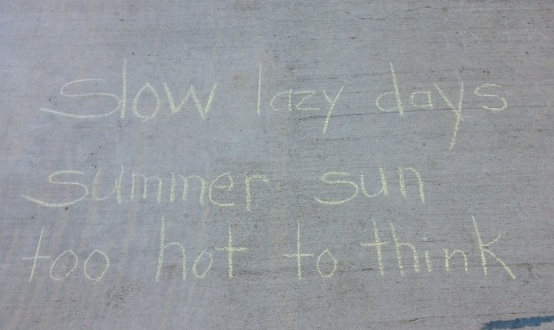 Slow lazy days
summer sun
too hot to think